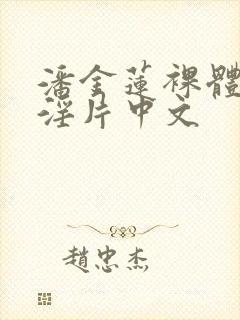 潘金蓮裸體
淫片中文
趙忠杰